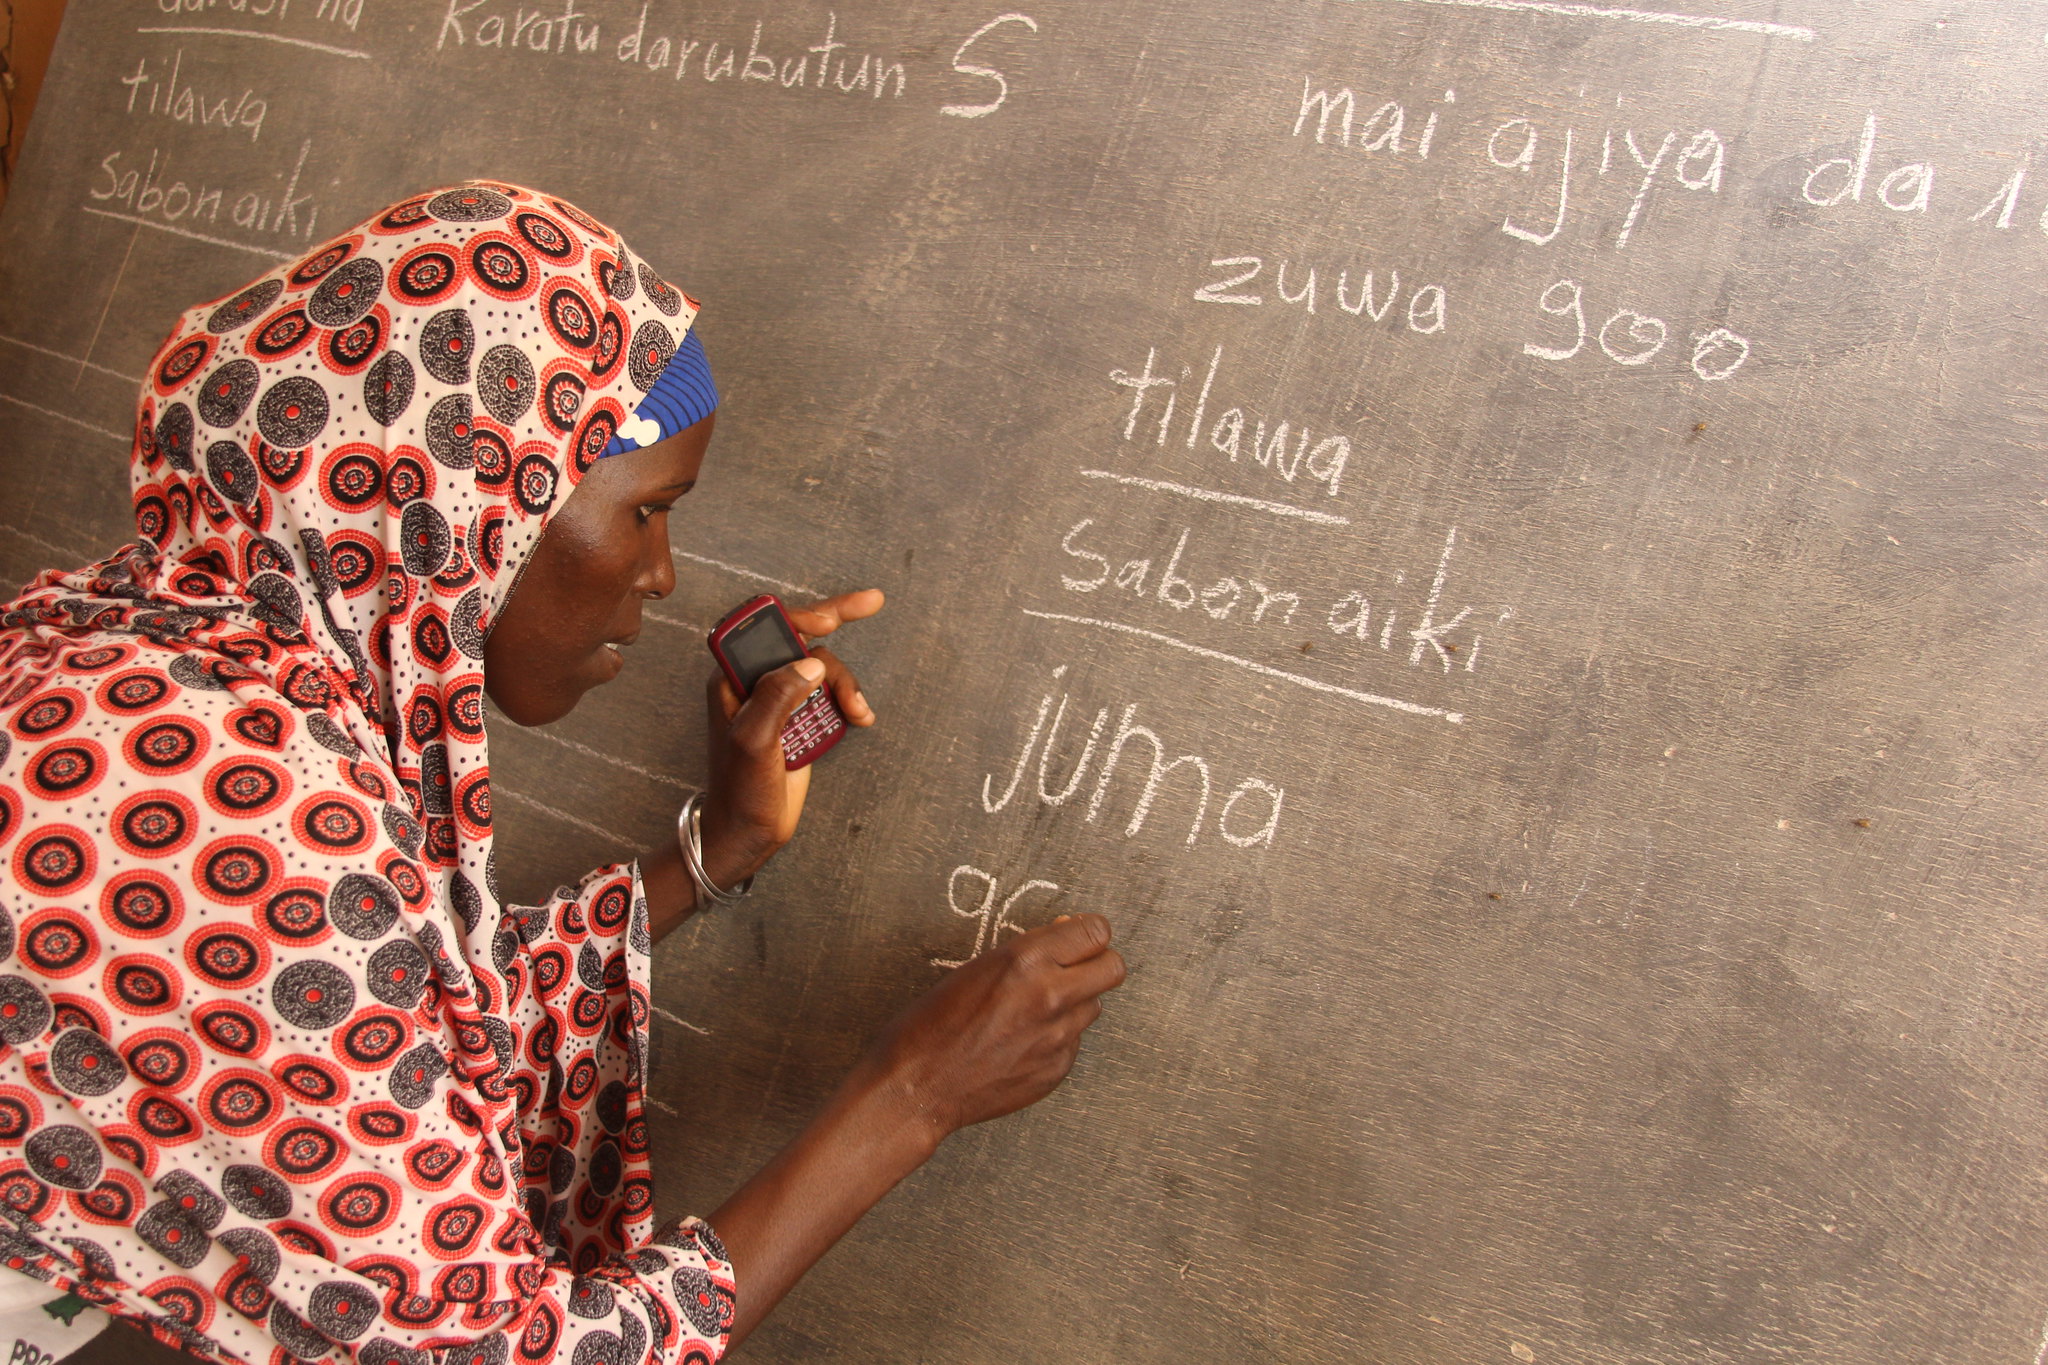 Karatu darubutun S
tilawa
sabon aiki
mai ajiya da
zuwa goo
tilawa
sabon aiki
juma